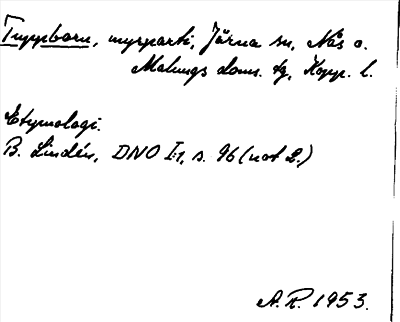 Tuppborn, myrparti, Järna sn, Nås o.
Malungs doms. tg, Kopp. l.
Etymologi.
B. Lindén, DNO I:1, s. 96 (not 2.)
A.R. 1953.